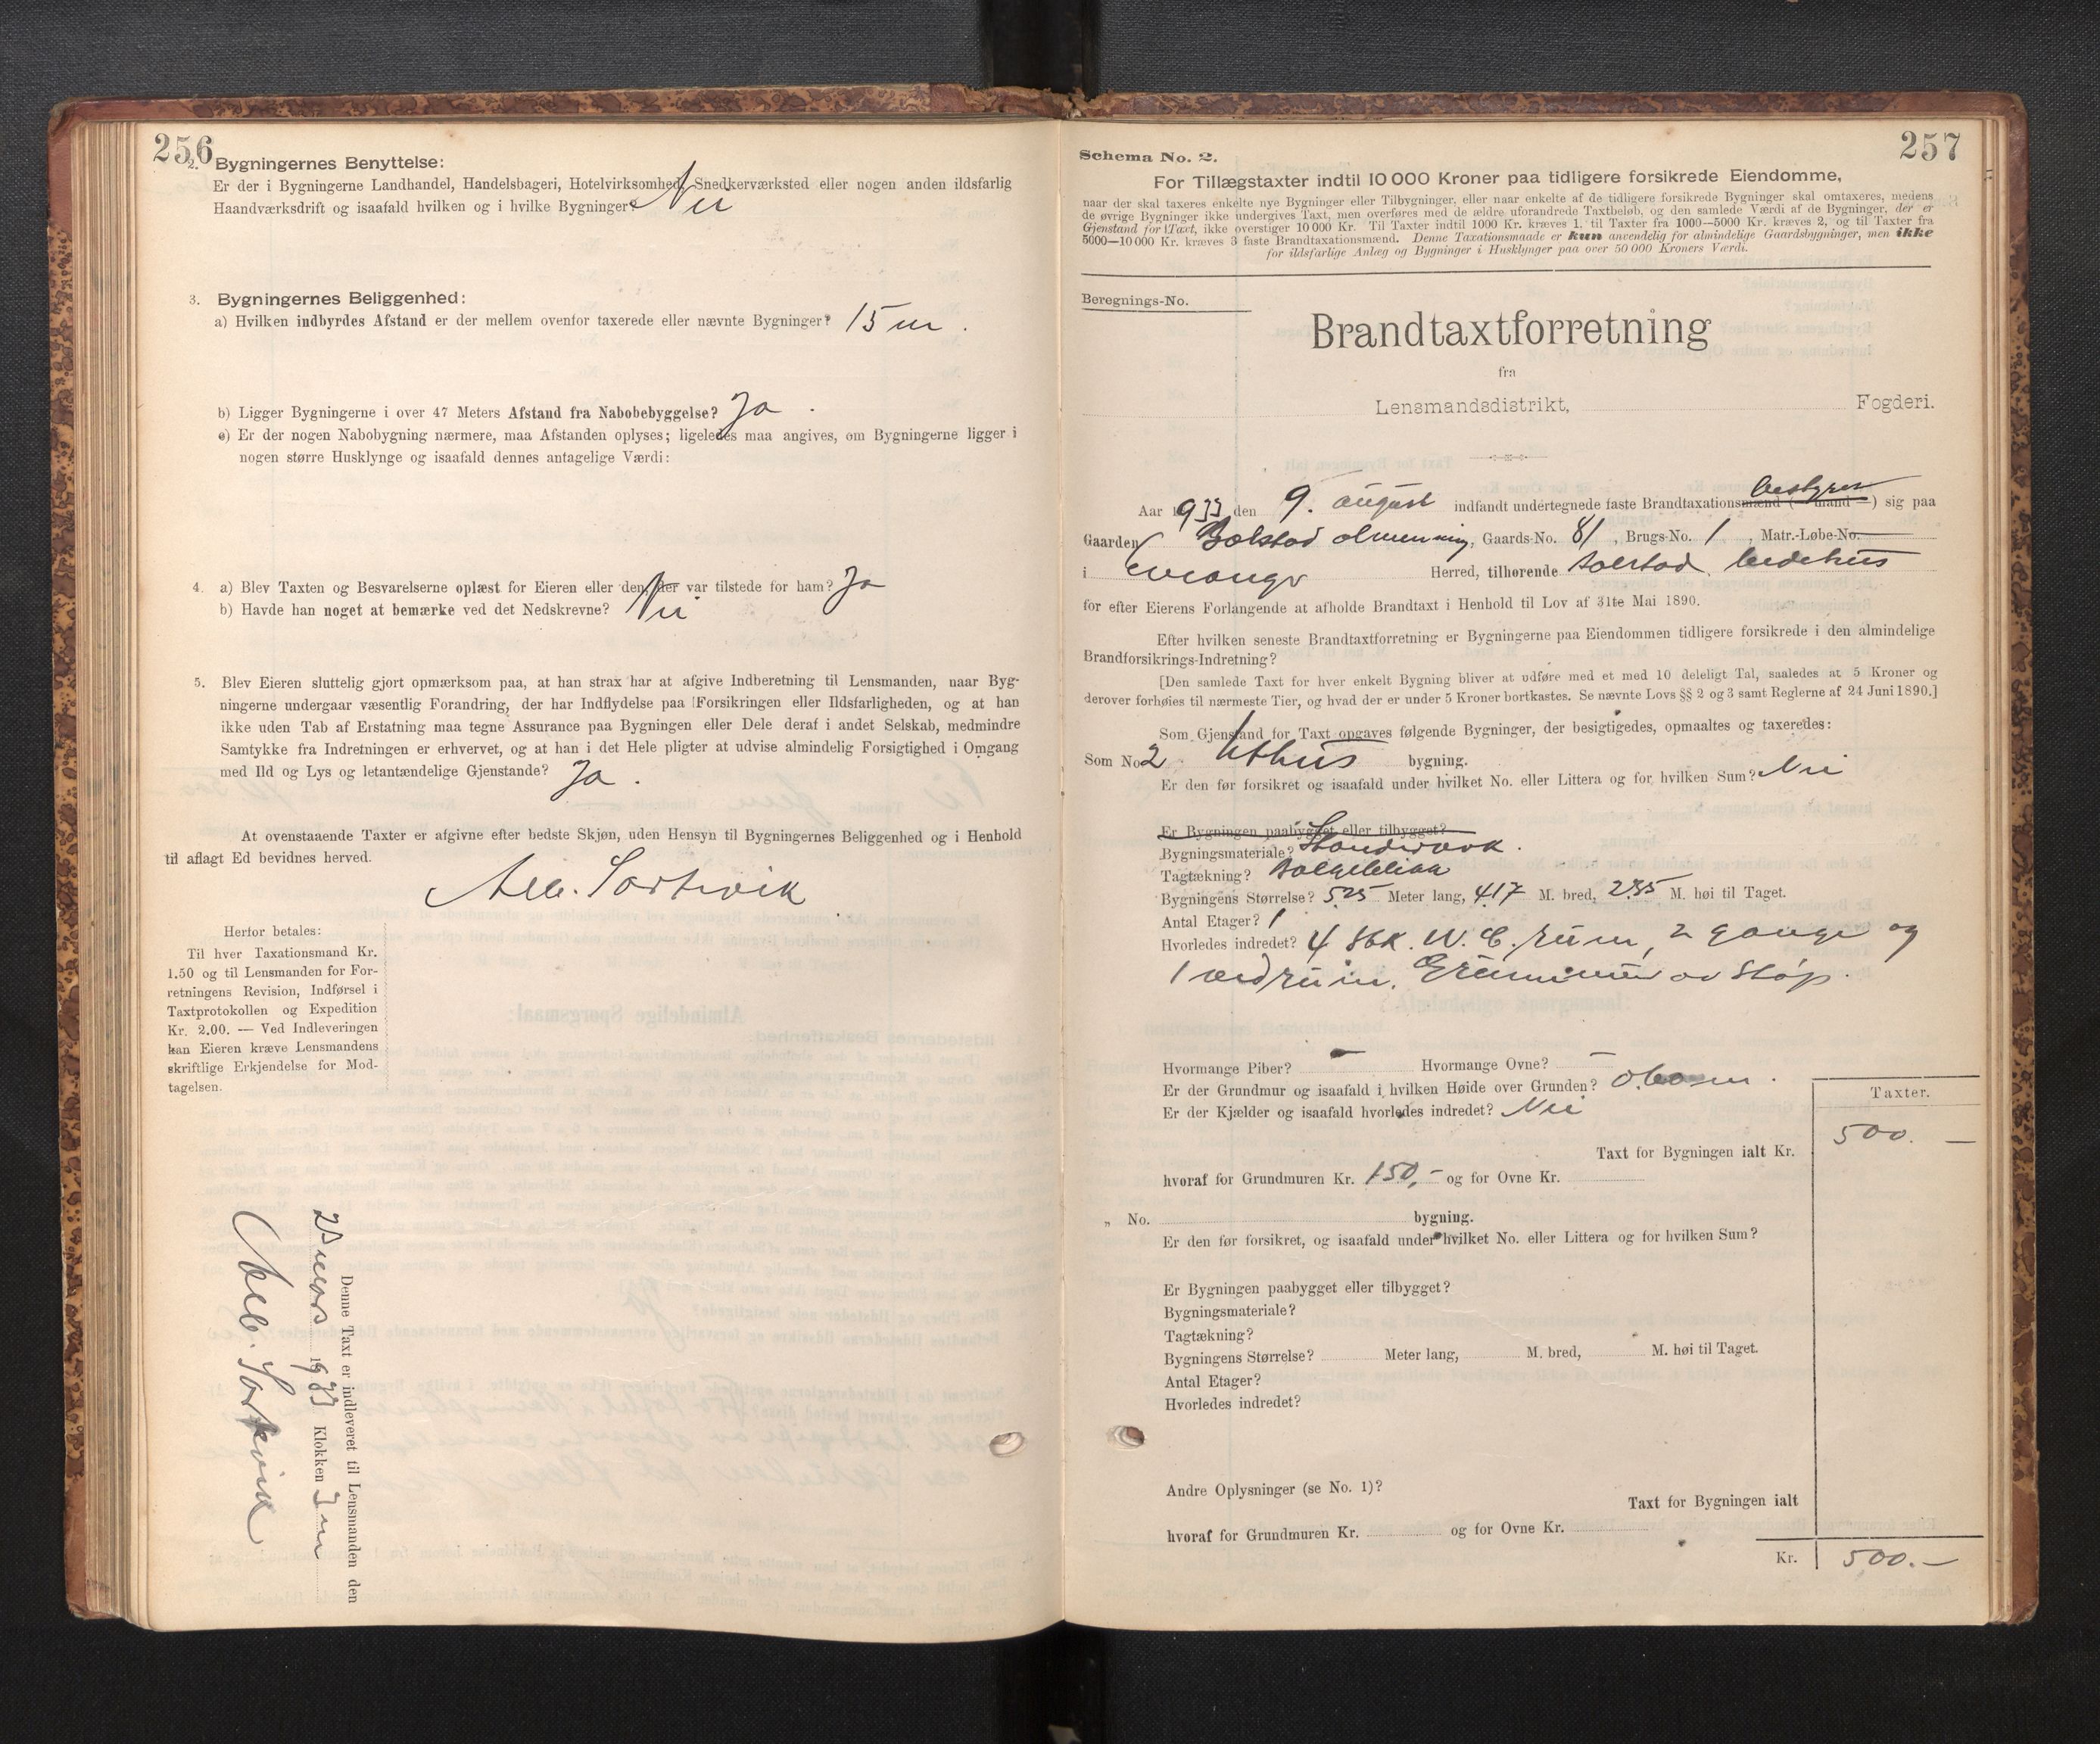 256
2. Bygningernes Benyttelse:
Er der i Bygningerne Landhandel, Handelsbageri, Hotelvirksomhed, Snedkerværksted eller nogen anden ildsfarlig
Haandværksdrift og isaafald hvilken og i hvilke Bygninger? Nei
3. Bygningernes Beliggenhed:
a) Hvilken indbyrdes Afstand er der mellem ovenfor taxerede eller nævnte Bygninger? 15 m.
b) Ligger Bygningerne i over 47 Meters Afstand fra Nabobebyggelse? Ja.
c) Er der nogen Nabobygning nærmere, maa Afstanden oplyses; ligeledes maa angives, om Bygningerne ligger i
nogen større Husklynge og isaafald dennes antagelige Værdi:
4. a) Blev Taxten og Besvarelserne oplæst for Eieren eller den, der var tilstede for ham? Ja
b) Havde han noget at bemærke ved det Nedskrevne? Nei
5. Blev Eieren sluttelig gjort opmærksom paa, at han strax har at afgive Indberetning til Lensmanden, naar Byg-
ningerne undergaar væsentlig Forandring, der har Indflydelse paa Forsikringen eller Ildsfarligheden, og at han
ikke uden Tab af Erstatning maa tegne Assurance paa Bygningen eller Dele deraf i andet Selskab, medmindre
Samtykke fra Indretningen er erhvervet, og at han i det Hele pligter at udvise almindelig Forsigtighed i Omgang
med Ild og Lys og letantændelige Gjenstande? Ja.
At ovenstaaende Taxter er afgivne efter bedste Skjøn, uden Hensyn til Bygningernes Beliggenhed og i Henhold
til aflagt Ed bevidnes herved.
Herfor betales:
Til hver Taxationsmand Kr.
1.50 og til Lensmanden for For-
retningens Revision, Indførsel i
Taxtprotokollen og Expedition
Kr. 2.00. — Ved Indleveringen
kan Eieren kræve Lensmandens
skriftlige Erkjendelse for Mod-
tagelsen.
Denne Taxt er indleveret til Lensmanden den
1933 Klokken
257
Schema No. 2.
For Tillægstaxter indtil 10 000 Kroner paa tidligere forsikrede Eiendomme,
naar der skal taxeres enkelte nye Bygninger eller Tilbygninger, eller naar enkelte af de tidligere forsikrede Bygninger skal omtaxeres, medens
de øvrige Bygninger ikke undergives Taxt, men overføres med de ældre uforandrede Taxtbeløb, og den samlede Værdi af de Bygninger, der er
Gjenstand for Taxt, ikke overstiger 10 000 Kr. Til Taxter indtil 1000 Kr. kræves 1, til Taxter fra 1000—5000 Kr. kræves 2, og til Taxter fra
5000—10 000 Kr. kræves 3 faste Brandtaxationsmænd. Denne Taxationsmaade er kun anvendelig for almindelige Gaardsbygninger, men ikke
for ildsfarlige Anlæg og Bygninger i Husklynger paa over 50 000 Kroners Værdi.
Beregnings-No.
Brandtaxtforretning
fra
Lensmandsdistrikt, Fogderi.
bestyrer
Aar 1933 den 9. august indfandt undertegnede faste Brandtaxationsmænd (—mand—) sig paa
Gaarden Bolstad almenning, Gaards-No. 81, Brugs-No. 1, Matr.-Løbe-No.
i Evanger Herred, tilhørende Bolstad bedehus
for efter Eierens Forlangende at afholde Brandtaxt i Henhold til Lov af 31te Mai 1890.
Efter hvilken seneste Brandtaxtforretning er Bygningerne paa Eiendommen tidligere forsikrede i den almindelige
Brandforsikrings-Indretning?
[Den samlede Taxt for hver enkelt Bygning bliver at udføre med et med 10 deleligt Tal, saaledes at 5 Kroner og
derover forhøies til nærmeste Tier, og hvad der er under 5 Kroner bortkastes. Se nævnte Lovs §§ 2 og 3 samt Reglerne af 24 Juni 1890.]
Som Gjenstand for Taxt opgaves følgende Bygninger, der besigtigedes, opmaaltes og taxeredes:
Som No 2. Uthus bygning.
Er den før forsikret og isaafald under hvilket No. eller Littera og for hvilken Sum? Nei
Er Bygningen paabygget eller tilbygget?
Bygningsmateriale? Standerverk.
Tagtækning? Bølgeblikk
Bygningens Størrelse? 5.25 Meter lang, 4.17 M. bred, 2.35 M. høi til Taget.
Antal Etager? 1
Hvorledes indredet? 4 stk. W.C. rum, 2 gange og
1 vedrum. Grunnmur av støp.
Hvormange Piber? — Hvormange Ovne? —
Er der Grundmur og isaafald i hvilken Høide over Grunden?
Er der Kjælder og isaafald hvorledes indredet? Nei
Taxter.
500. —
Taxt for Bygningen ialt Kr.
hvoraf for Grundmuren Kr. 150,- og for Ovne Kr.
„ No. bygning.
Er den før forsikret, og isaafald under hvilket No. eller Littera og for hvilken Sum?
Er Bygningen paabygget eller tilbygget?
Bygningsmateriale?
Tagtækning?
Bygningens Størrelse? Meter lang, M. bred, M. høi til Taget.
Antal Etager?
Hvorledes indredet?
Andre Oplysninger (se No. 1)?
Taxt for Bygningen ialt
hvoraf for Grundmuren Kr. og for Ovne Kr.
Kr. 500.—